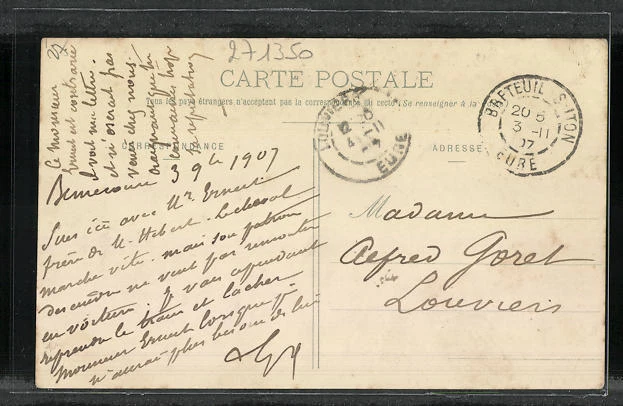 271350
CARTE POSTALE
Tous les pays étrangers n'acceptent pas la correspondance au recto. (Se renseigner à la
CORRESPONDANCE
ADRESSE
BRETEUIL-S-ITON
20 5
3 -11
07
EURE
LOUVIERS
4 -11
EURE
Le monsieur
Ernest est contrarié
d'avoir
et n'oserait pas
venir chez nous
trop
sa réputation
3 9bre 1907
Suis ici avec Mr. Ernest
frère de M. Hébert. Le cheval
marche vite. mais son patron
ne veut pas remonter
en voiture. Je vais cependant
reprendre le train et lâcher
Monsieur Ernest lorsque j'
n'aurai plus besoin de lui
Madame
Alfred Goret
Louviers